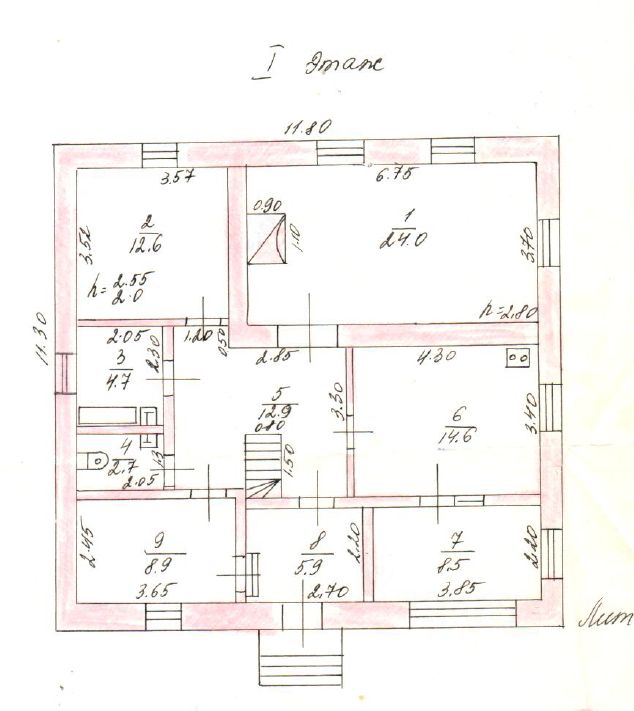 I этаж
11.80
3.57
6.75
3.52
2
12.6
h= 2.55
2.0
0.90
1.10
1
24.0
3.70
h=2.80
11.30
2.05
3
4.7
2.30
1.20
0.50
2.85
4.30
5
12.9
3.30
6
14.6
3.40
0.80
1.50
4
2.7
1.3
2.05
2.45
9
8.9
3.65
8
5.9
2.20
2.70
7
8.5
2.20
3.85
Лит